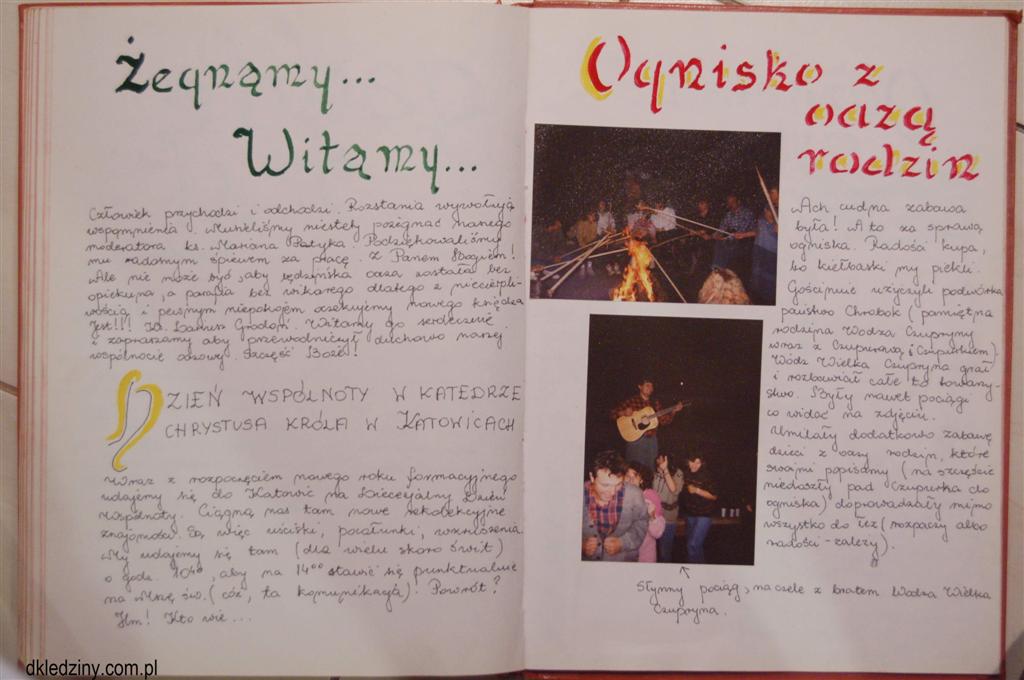 Żegnamy...
Witamy...
Człowiek przychodzi i odchodzi. Rozstania wywołują
wspomnienia. Musieliśmy niestety pożegnać naszego
moderatora ks. Mariana Patyka. Podziękowaliśmy
mu radosnym śpiewem za pracę. Z Panem Bogiem!
Ale nie może być, aby lędzińska oaza została bez
opiekuna, a parafia bez wikarego dlatego z niecierpli-
wością i pewnym niepokojem oczekujemy nowego księdza
Jest!!! Ks. Dariusz Grodoń. Witamy go serdecznie
i zapraszamy aby przewodniczył duchowo naszej
wspólnocie oazowej. Szczęść Boże!
DZIEŃ WSPÓLNOTY W KATEDRZE
CHRYSTUSA KRÓLA W KATOWICACH
Wraz z rozpoczęciem nowego roku formacyjnego
udajemy się do Katowic na Diecezjalny Dzień
Wspólnoty. Ciągną nas tam nowe rekolekcyjne
znajomości. Są więc uściski, pocałunki, wzruszenia.
My udajemy się tam (dla wielu skoro świt)
o godz. 10⁴⁰, aby na 14⁰⁰ stawić się punktualnie
na Mszę św. (cóż, ta komunikacja)! Powrót?
Hm! Kto wie...
Ognisko z
oazą
rodzin
Ach cudna zabawa
była! A to za sprawą
ogniska. Radości kupa,
bo kiełbaski my piekli.
Gościnnie użyczyli podwórka
państwo Chrobok (pamiętna
rodzina Wodza Czupryny
wraz z Czuprową i Czuprkiem).
Wódz Wielka Czupryna grał
i rozbawiał całe to towarzy-
stwo. Były nawet pociągi
co widać na zdjęciu.
Umilały dodatkowo zabawę
dzieci z oazy rodzin, które
swoimi popisami (na szczęście
niedoszły pad Czuprka do
ogniska) doprowadzały mimo
wszystko do łez (rozpaczy albo
radości - zależy).
Słynny pociąg, na czele z bratem Wodza Wielka
Czupryna.
dkledziny.com.pl